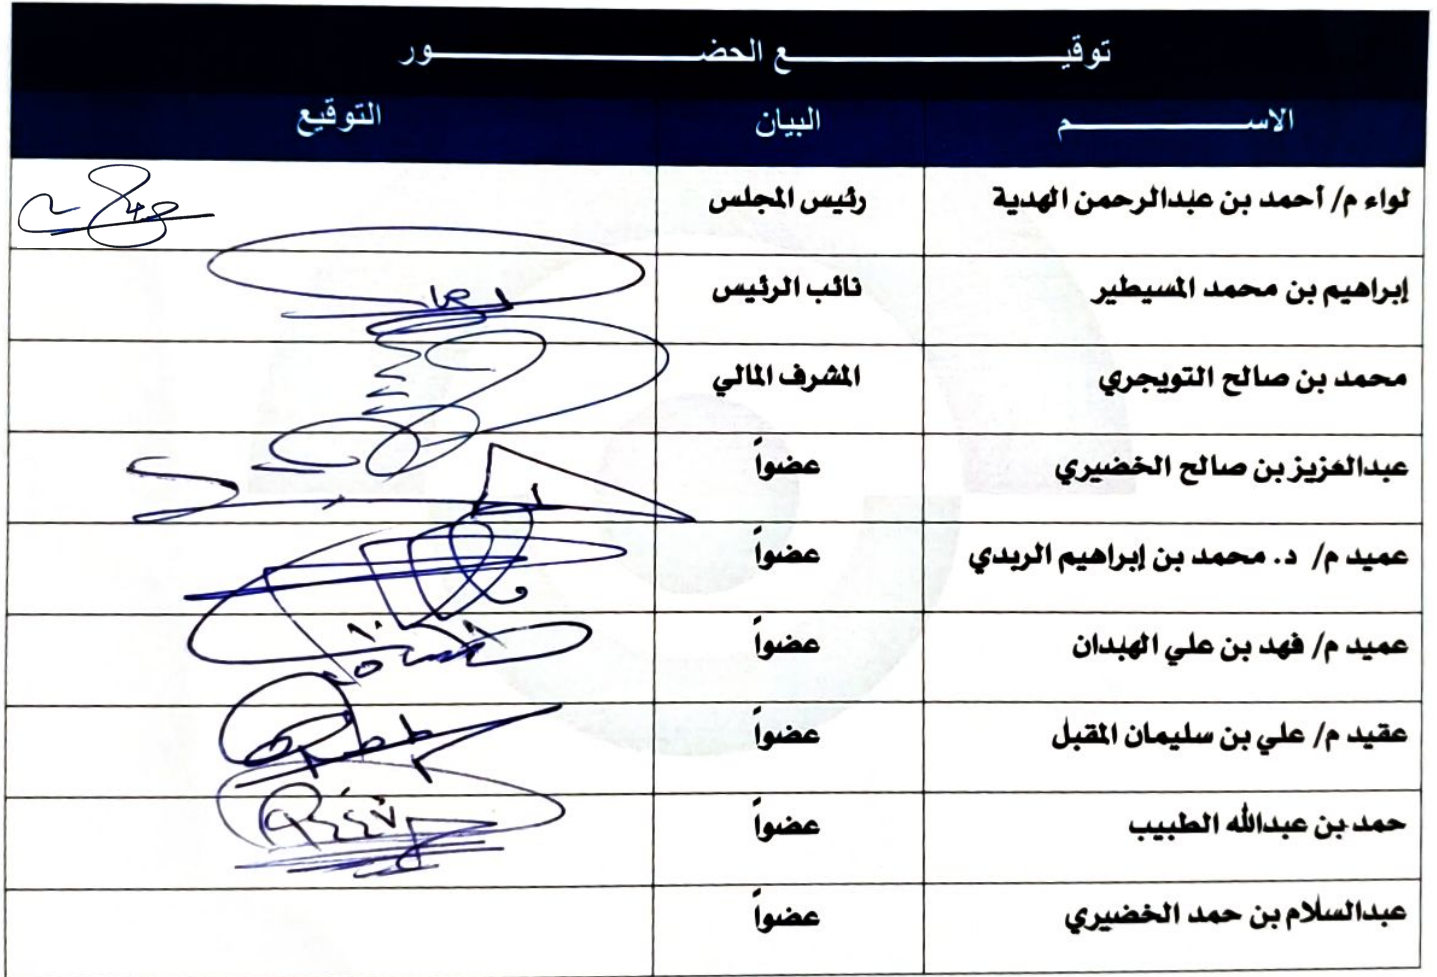 توقيع الحضور
الاسم البيان التوقيع
لواء م/ أحمد بن عبدالرحمن الهدية رئيس المجلس
إبراهيم بن محمد المسيطير نائب الرئيس
محمد بن صالح التويجري المشرف المالي
عبدالعزيز بن صالح الخضيري عضواً
عميد م/ د. محمد بن إبراهيم الربدي عضواً
عميد م/ فهد بن علي الهبدان عضواً
عقيد م/ علي بن سليمان المقبل عضواً
حمد بن عبدالله الطبيب عضواً
عبدالسلام بن حمد الخضيري عضواً